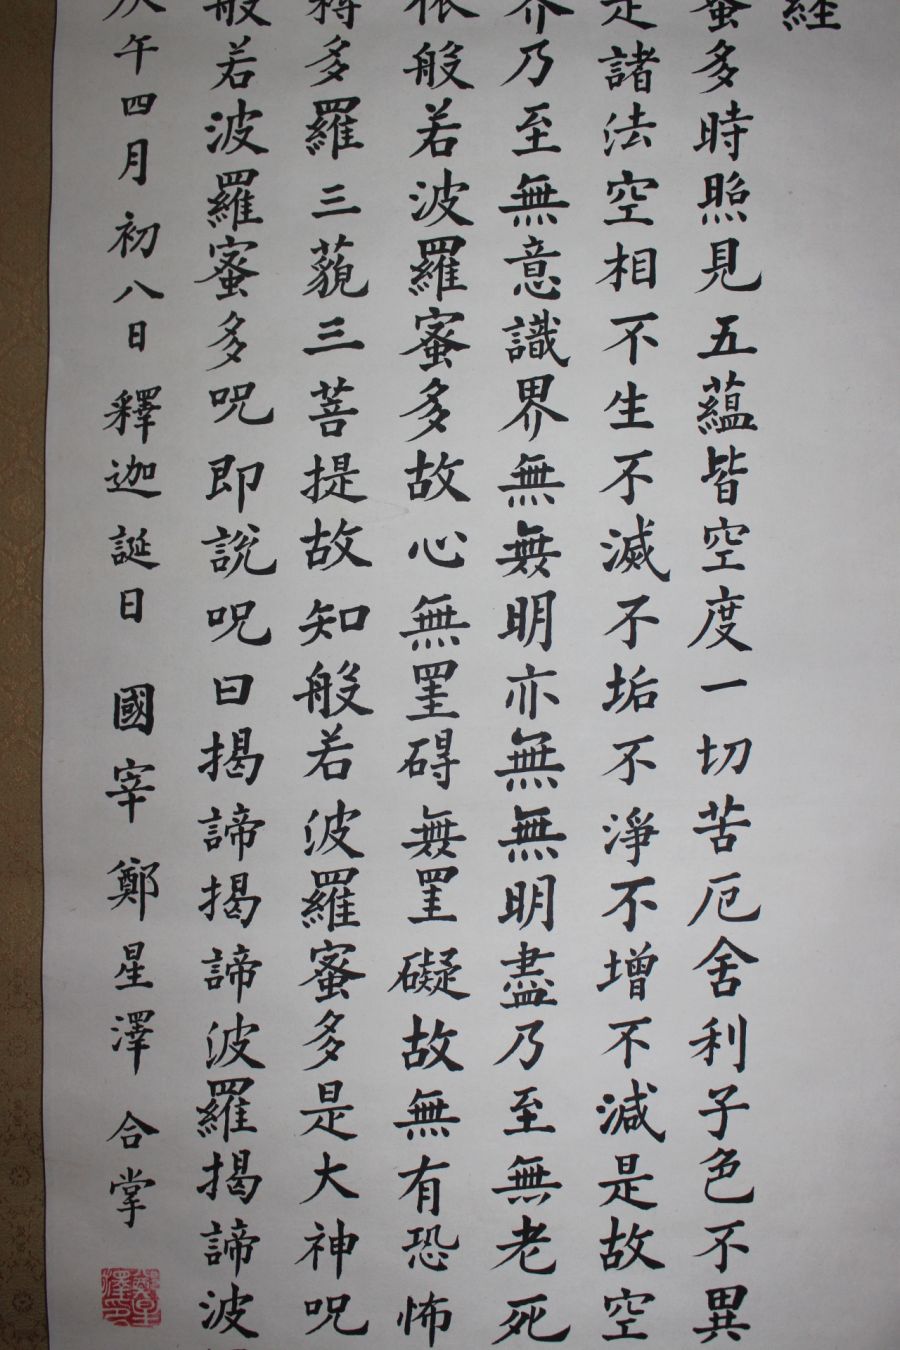 經
蜜多時照見五蘊皆空度一切苦厄舍利子色不異
是諸法空相不生不滅不垢不淨不增不減是故空
界乃至無意識界無無明亦無無明盡乃至無老死
依般若波羅蜜多故心無罣碍無罣礙故無有恐怖
耨多羅三藐三菩提故知般若波羅蜜多是大神呪
般若波羅蜜多呪即說呪曰揭諦揭諦波羅揭諦波
庚午四月初八日釋迦誕日 國宰鄭星澤 合掌
鄭星澤印